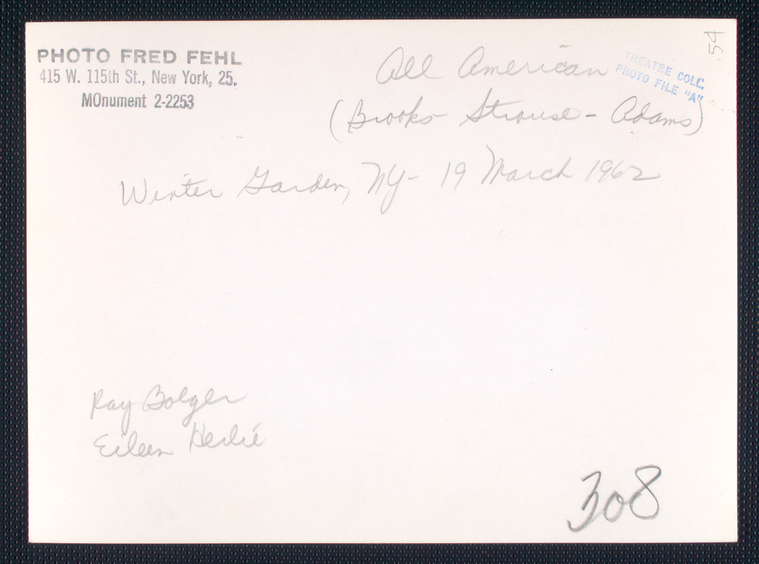 PHOTO FRED FEHL
415 W. 115th St., New York, 25.
MOnument 2-2253
All American
(Brooks - Strouse - Adams)
THEATRE COLL.
PHOTO FILE "A"
54
Winter Garden, NY - 19 March 1962
Ray Bolger
Eileen Herlie
308